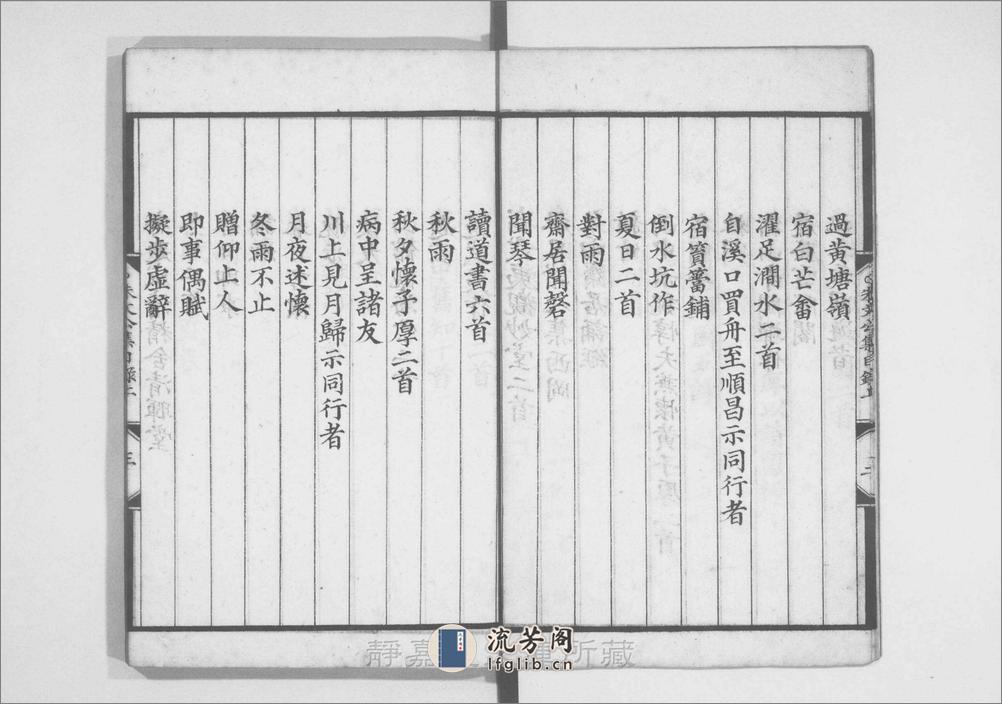 過黃塘嶺
宿白芒畬
濯足澗水二首
自溪口買舟至順昌示同行者
宿篔簹鋪
倒水坑作
夏日二首
對雨
齋居聞磬
聞琴
讀道書六首
秋雨
秋夕懷子厚二首
病中呈諸友
川上見月歸示同行者
月夜述懷
冬雨不止
贈仰上人
即事偶賦
擬步虛辭
三
流芳阁
lfglib.cn
所藏